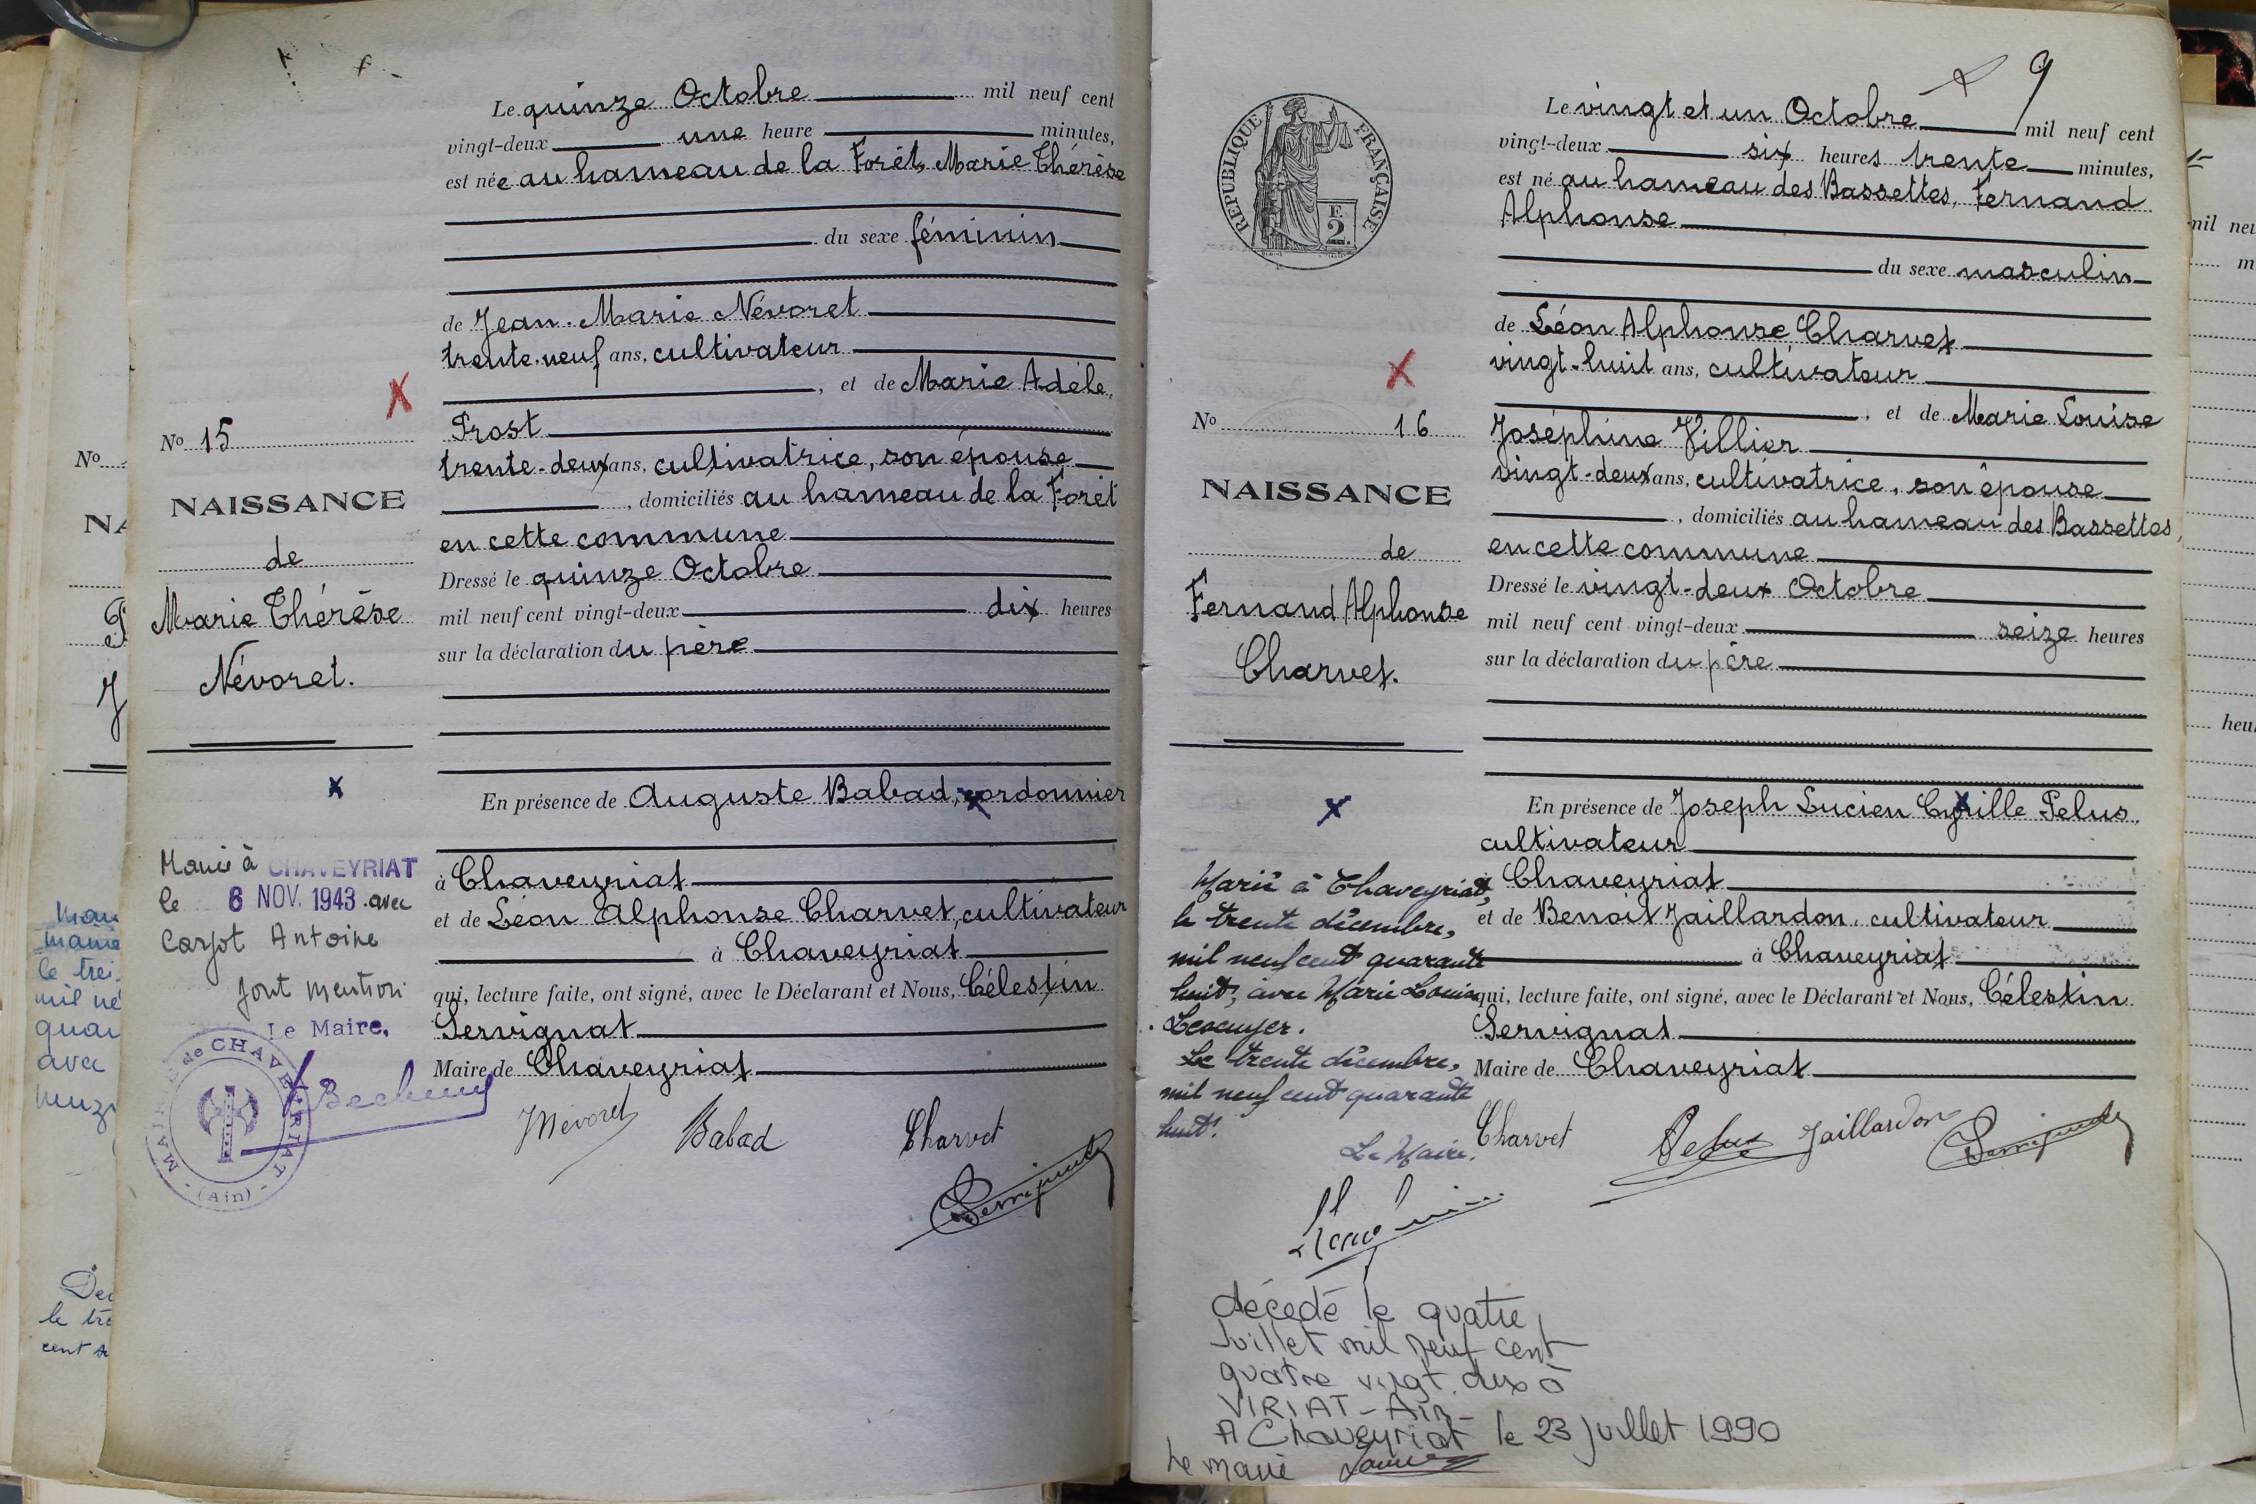 Le quinze Octobre mil neuf cent
vingt-deux une heure minutes,
est née au hameau de la Forêt, Marie Thérèse
du sexe féminin
de Jean-Marie Névoret
trente-neuf ans, cultivateur
, et de Marie Adèle
Prost
trente-deux ans, cultivatrice, son épouse
, domiciliés au hameau de la Forêt
en cette commune
Dressé le quinze Octobre
mil neuf cent vingt-deux dix heures
sur la déclaration du père
En présence de Auguste Babad, cordonnier
à Chaveyriat
et de Léon Alphonse Charvet, cultivateur
à Chaveyriat
qui, lecture faite, ont signé, avec le Déclarant et Nous, Célestin
Servignat
Maire de Chaveyriat
JMévoret Babad Charvet
Servignat
No 15
NAISSANCE
de
Marie Thérèse
Névoret.
Mariée à CHAVEYRIAT
le 6 NOV. 1943 avec
Carjot Antoine
Dont mention
Le Maire,
MAIRIE de CHAVEYRIAT
- (Ain) -
No
NA
9
Le vingt et un Octobre mil neuf cent
vingt-deux six heures trente minutes,
est né au hameau des Bassettes, Fernand
Alphonse
du sexe masculin
de Léon Alphonse Charvet
vingt-huit ans, cultivateur
, et de Marie Louise
Joséphine Villier
vingt-deux ans, cultivatrice, son épouse
, domiciliés au hameau des Bassettes,
en cette commune
Dressé le vingt-deux Octobre
mil neuf cent vingt-deux seize heures
sur la déclaration du père
En présence de Joseph Lucien Cyrille Pelus,
cultivateur
à Chaveyriat
et de Benoit Jaillardon, cultivateur
à Chaveyriat
qui, lecture faite, ont signé, avec le Déclarant et Nous, Célestin
Servignat
Maire de Chaveyriat
Charvet Pelus Jaillardon Servignat
RÉPUBLIQUE FRANÇAISE
E.
2
No 16
NAISSANCE
de
Fernand Alphonse
Charvet.
Marié à Chaveyriat,
le trente décembre,
mil neuf cent quarante
huit, avec Marie Louise
Lescuyer.
Le trente décembre,
mil neuf cent quarante
huit.
Le Maire.
décédé le quatre
Juillet mil neuf cent
quatre vingt dix à
VIRIAT - Ain -
A Chaveyriat le 23 juillet 1990
Le maire